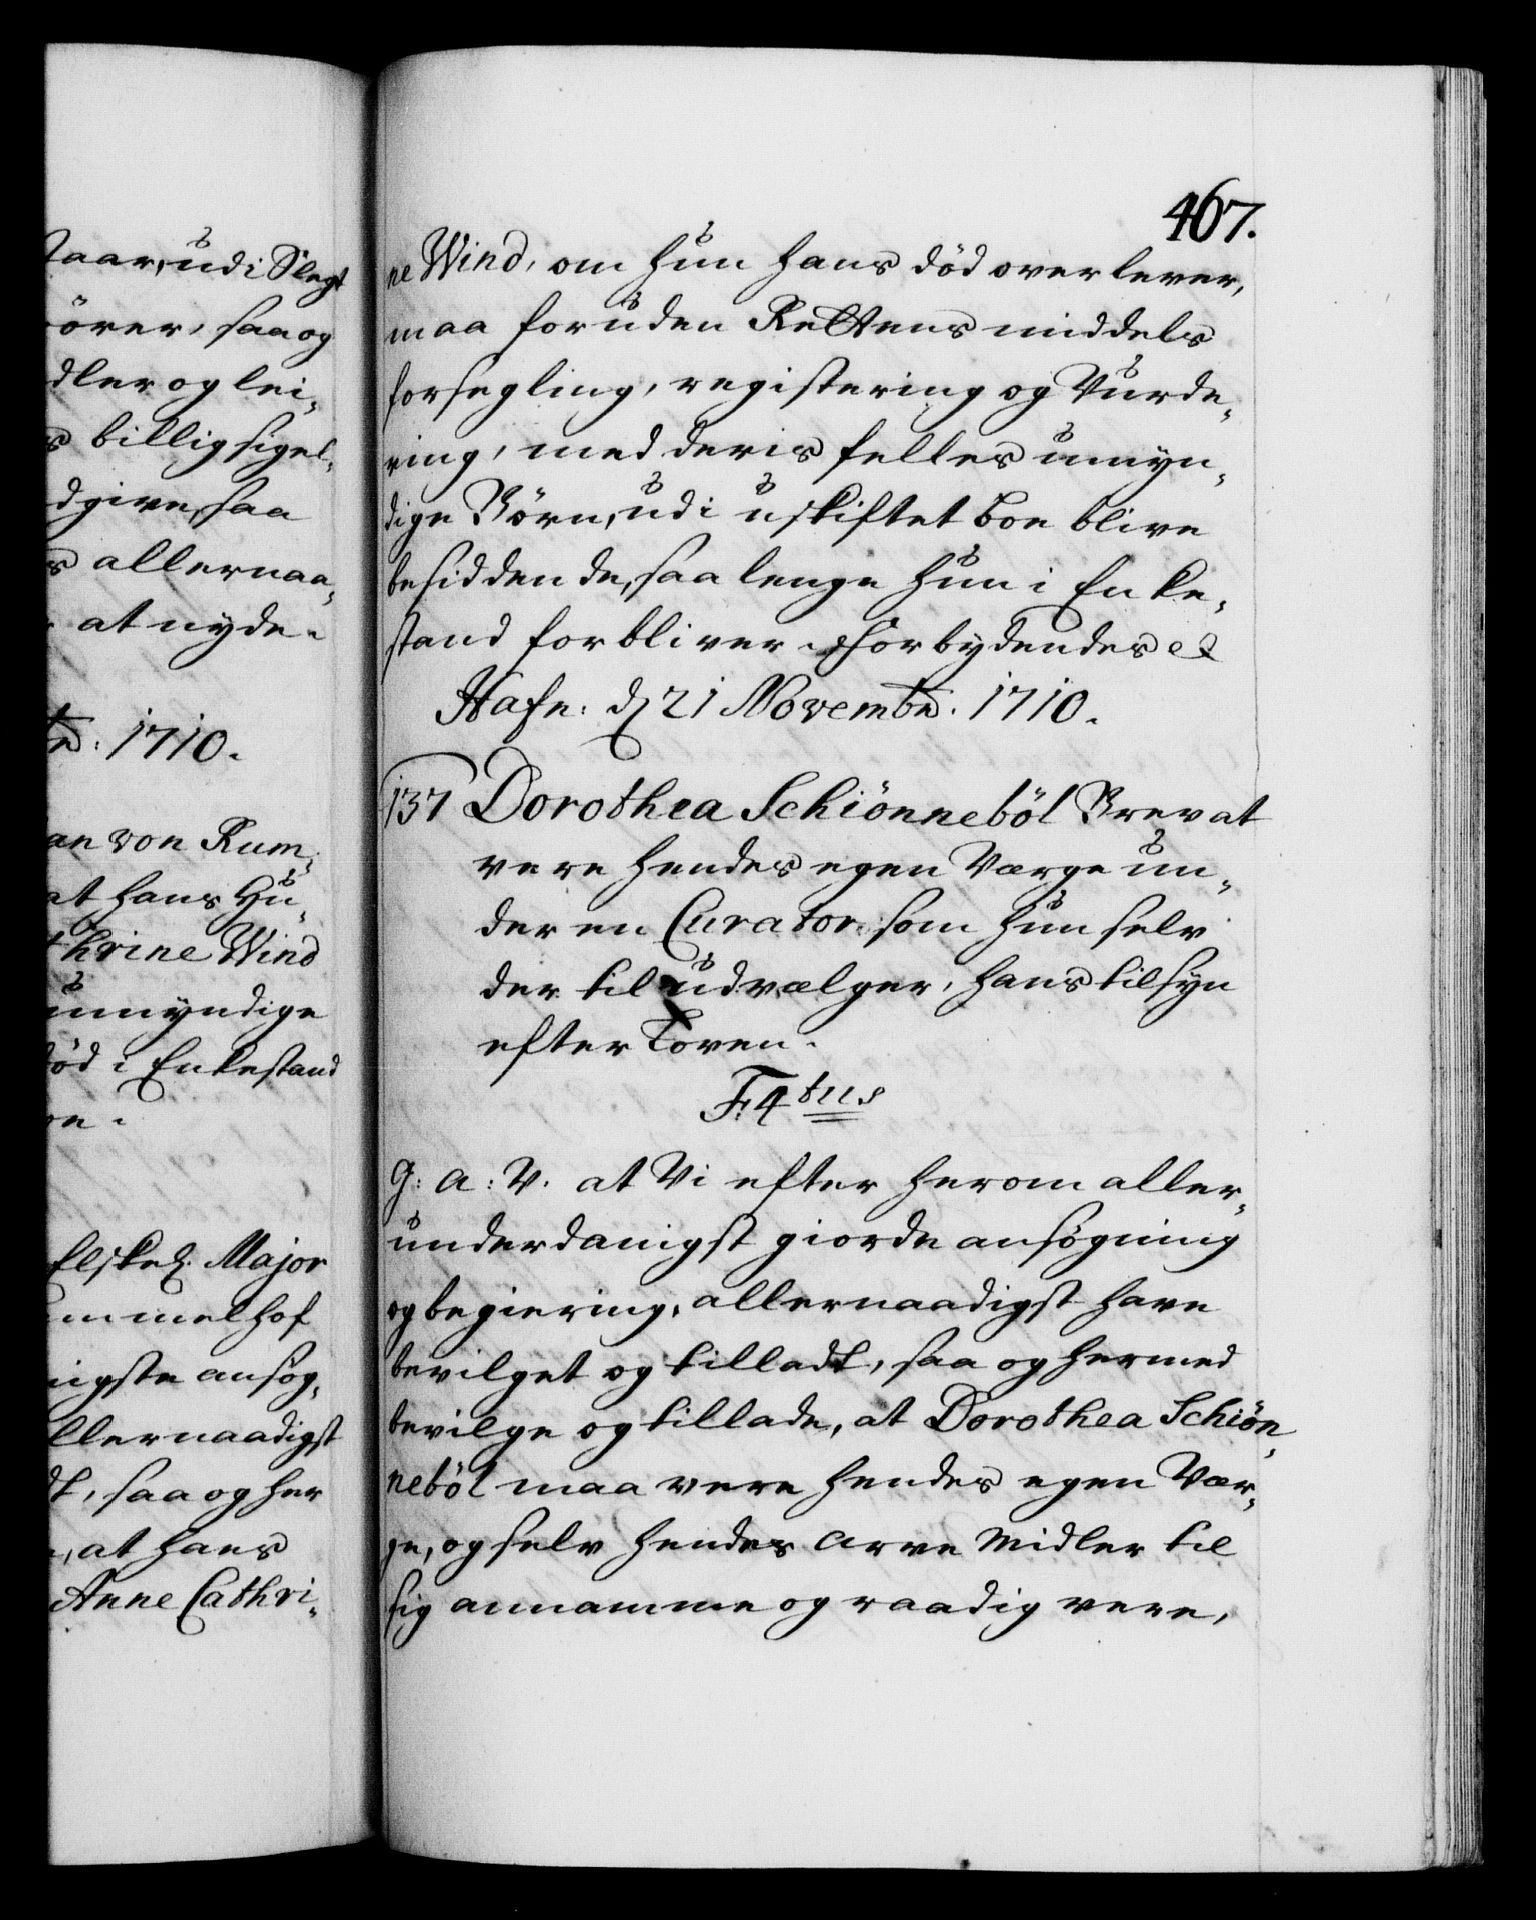 taar, udi Slegt
örer, saa og
dler og lei-
s billig sigel-
dgive, saa
s allernaa-
at nyde.
1710.
an von Rum-
at hans Hu-
thrine Wind
umyndige
död i Enkestand
Elskel. Major
mmelhof
nigste ansög-
llernaadigst
dt, saa og her
, at hans
Anne Cathri-
467.
ne Wind, om hun hans död overlever,
maa foruden Rettens middels
forsegling, registering og Vurde-
ring, med deris felles umyn-
dige Börn, udi uskiftet boe blive
besiddende, saa lenge hun i Enke-
stand forbliver. Forbydendes et
Hafn: d 21 Novembr. 1710.
137 Dorothea Schiönneböl Brev at
vere hendes egen Værge un-
der en Curator, som hun selv
der til udvælger, hans tilsyn
efter Loven.
F: 4tus
G: A: V. at Vi efter herom aller-
underdanigst giorde ansögning
og begiering, allernaadigst have
bevilget og tilladt, saa og hermed
bevilge og tillade, at Dorothea Schiön-
neböl maa vere hendes egen Vær-
ge, og selv hendes arve Midler til
sig annamme og raadig vere,